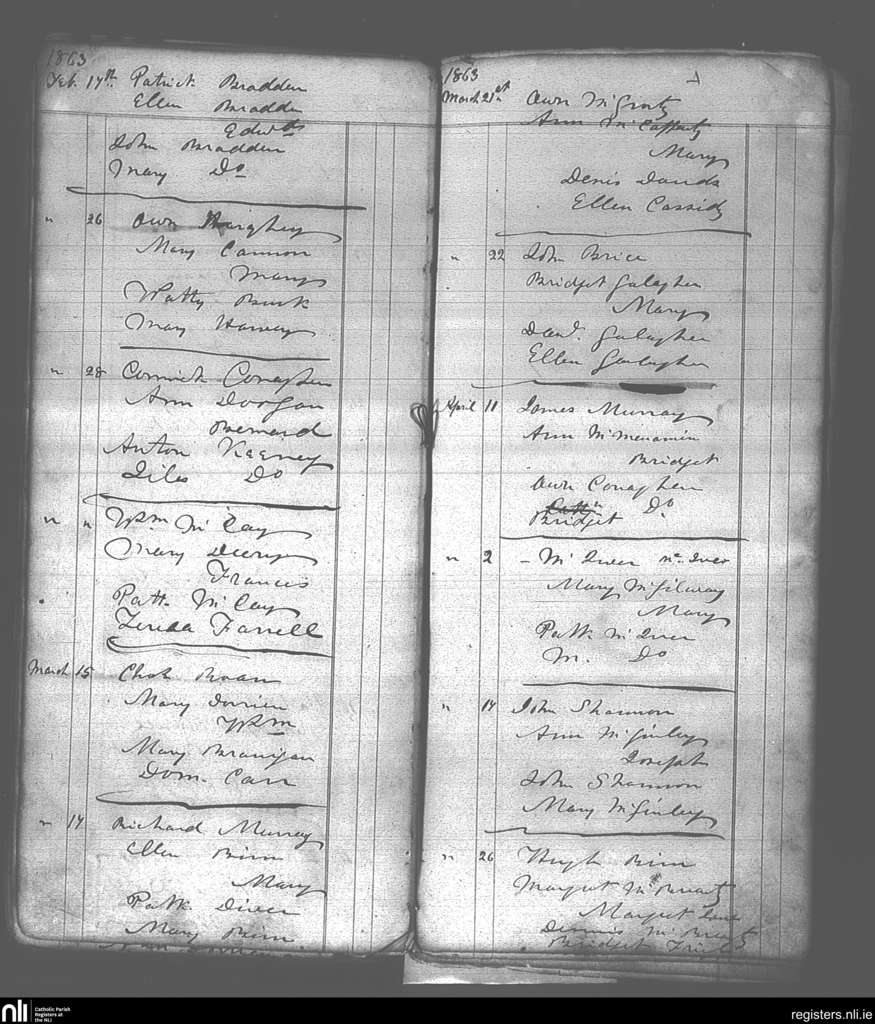 1863
Feb. 17th. Patrick Bradden
Ellen Bradden
Edwd
John Bradden
Mary Do
" 26 Own
Mary Cannon
Mary
Watty Burk
Mary Harvey
" 28 Conaghan
Ann Dorgan
Bernard
Anton Keeney
Do
" " Wm McCay
Mary
Francis
Patk. McCay
Farrell
March 15 Chas
Mary
Wm
Mary Branigan
Dom. Carr
" 17 Richard Murray
Ellen Birn
Mary
Patk. Diver
Mary Birn
1863
March 21st Own McGroty
Ann McCafferty
Mary
Denis
Ellen Cassidy
" 22 John Brice
Bridget Galagher
Mary
Danl. Galagher
Ellen Galagher
April 11 James Murray
Ann McMenamin
Bridget
Own Conaghan
Bridget Do
" 2 - McIver McIver
Mary McGilway
Mary
Patk McIver
M. Do
" 14 John Shannon
Ann McGinley
Joseph
John Shannon
Mary McGinley
" 26 Hugh Birn
Margret McBrearty
Margret
Dennis McBrearty
Bridget
nli
Catholic Parish
Registers at
the NLI
registers.nli.ie